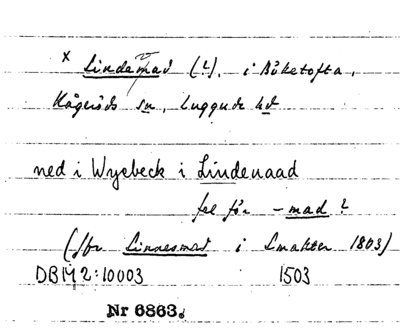 x Lindemad (?), i Böketofta,
Kågeröds sn, Luggude hd
ned i Wyebeck i Lindenaad
fel för - mad ?
(jfr Linnesmad i Smakten 1803)
DBM 2:10003 1503
Nr 6863.